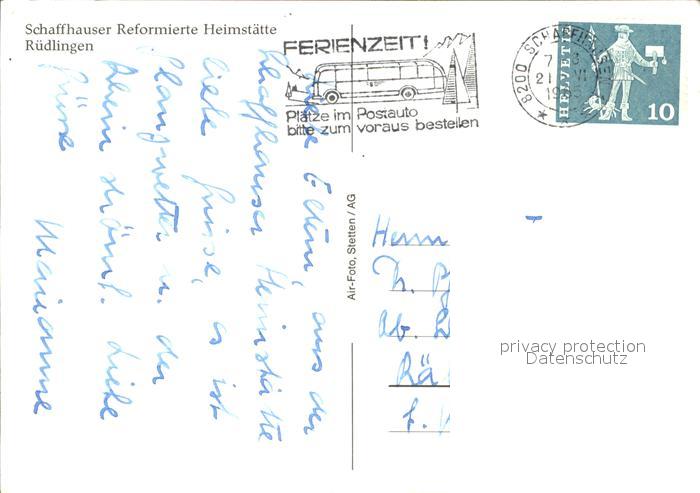 Schaffhauser Reformierte Heimstätte
Rüdlingen
FERIENZEIT!
Plätze im Postauto
bitte zum voraus bestellen
8200 SCHAFFHAUSEN
HELVETIA
10
Eltern, aus der
Schaffhauser Heimstätte
liebe Grüsse, es ist
u. der
Rhein strömt. Liebe
Grüsse
Marianne
Air-Foto, Stetten / AG
Herrn
Th.
Rä
privacy protection
Datenschutz